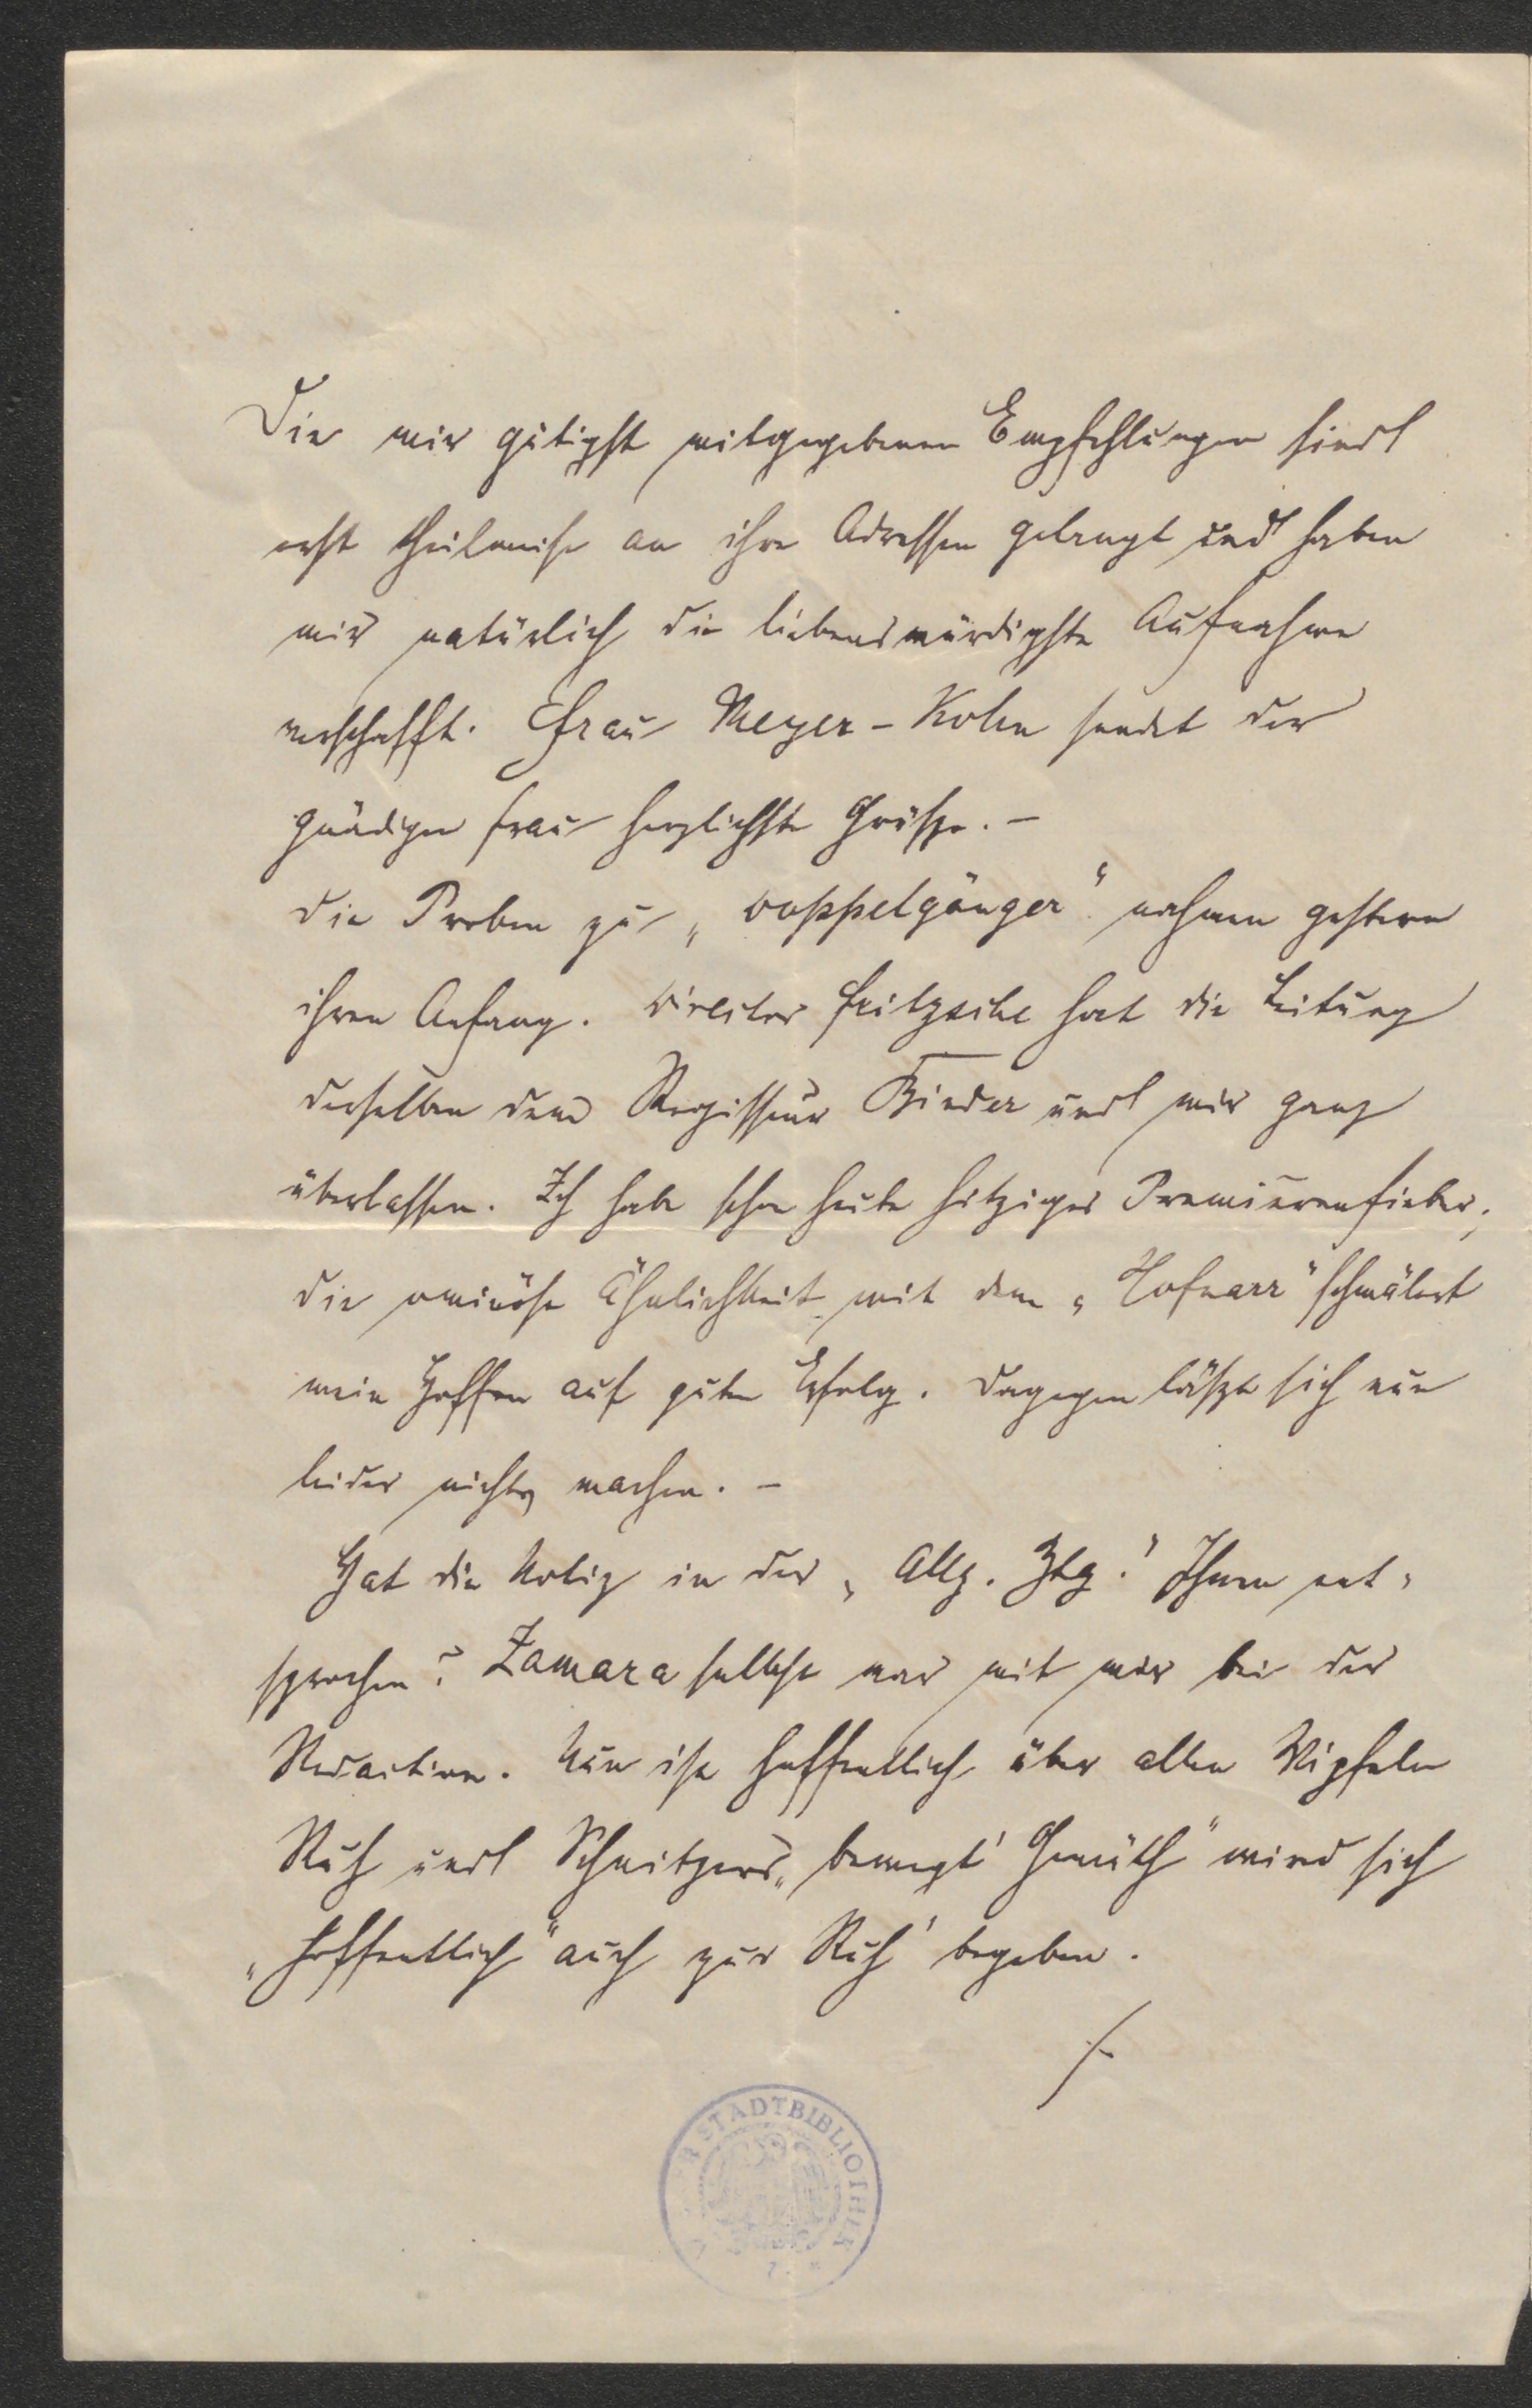 Die mir gütigst mitgegebenen Empfehlungen sind
erst theilweise an ihre Adressen gelangt und haben
mir natürlich die liebenswürdigste Aufnahme
verschafft. Frau Meyer-Kohn sendet der
gnädigen Frau herzlichste Grüsse. –
Die Proben zu „Doppelgänger" nahmen gestern
ihren Anfang. Director Fritzsche hat die Leitung
derselben dem Regisseur Binder und mir ganz
überlassen. Ich habe schon heute hitziges Premièrenfieber;
die ominöse Ähnlichkeit mit dem „Hofnarr" schmälert
mein Hoffen auf guten Erfolg. Dagegen lässt sich nun
leider nichts machen. –
Hat die Notiz in der „Allg. Ztg." Ihnen ent-
sprochen? Zamara selbst war mit mir bei der
Redaction. Nun ist hoffentlich über allen Wipfeln
Ruh und Schnitzers „bewegt' Gemüth" wird sich
„hoffentlich" auch zur Ruh' begeben.
./.
STADTBIBLIOTHEK